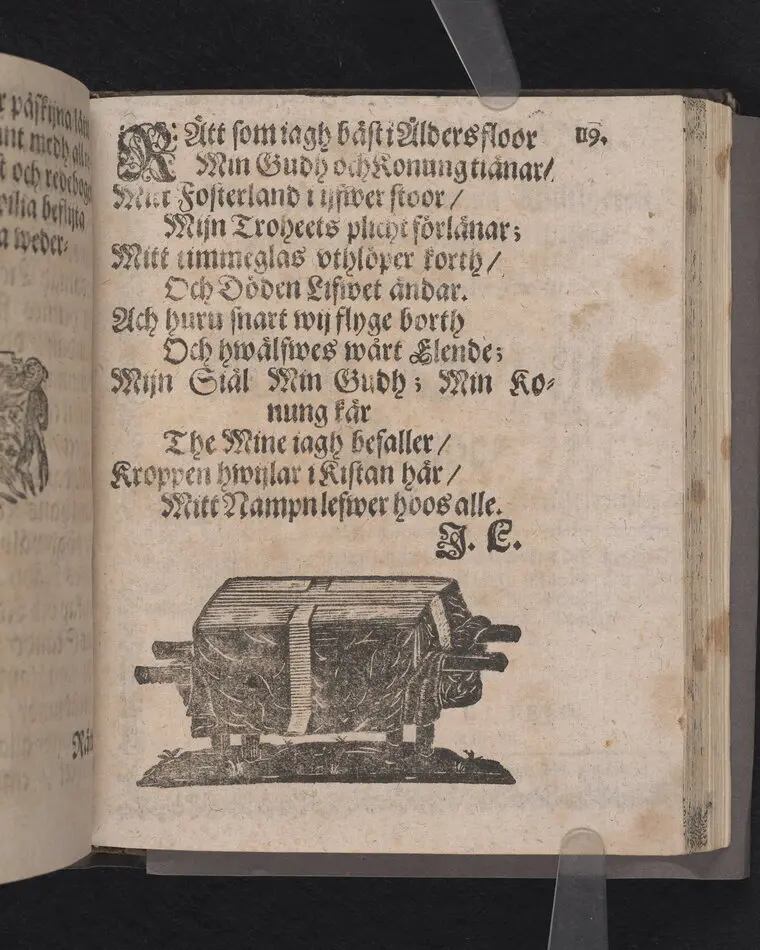 r påskijna låta
ant medh all
t och redeboge
vilia beflijta
a weder-
Rät
RÄtt som iagh bäst i Ålders floor 119.
Min Gudh och Konung tiänar/
Mitt Fosterland i ijfwer stoor /
Mijn Troheets plicht förlänar;
Mitt timmeglas vthlöper korth /
Och Döden Lifwet ändar.
Ach huru snart wij flyge borth
Och hwälfwes wårt Elende;
Mijn Siäl Min Gudh; Min Ko-
nung kär
The Mine iagh befaller /
Kroppen hwijlar i Kistan här /
Mitt Nampn lefwer hoos alle.
J. L.